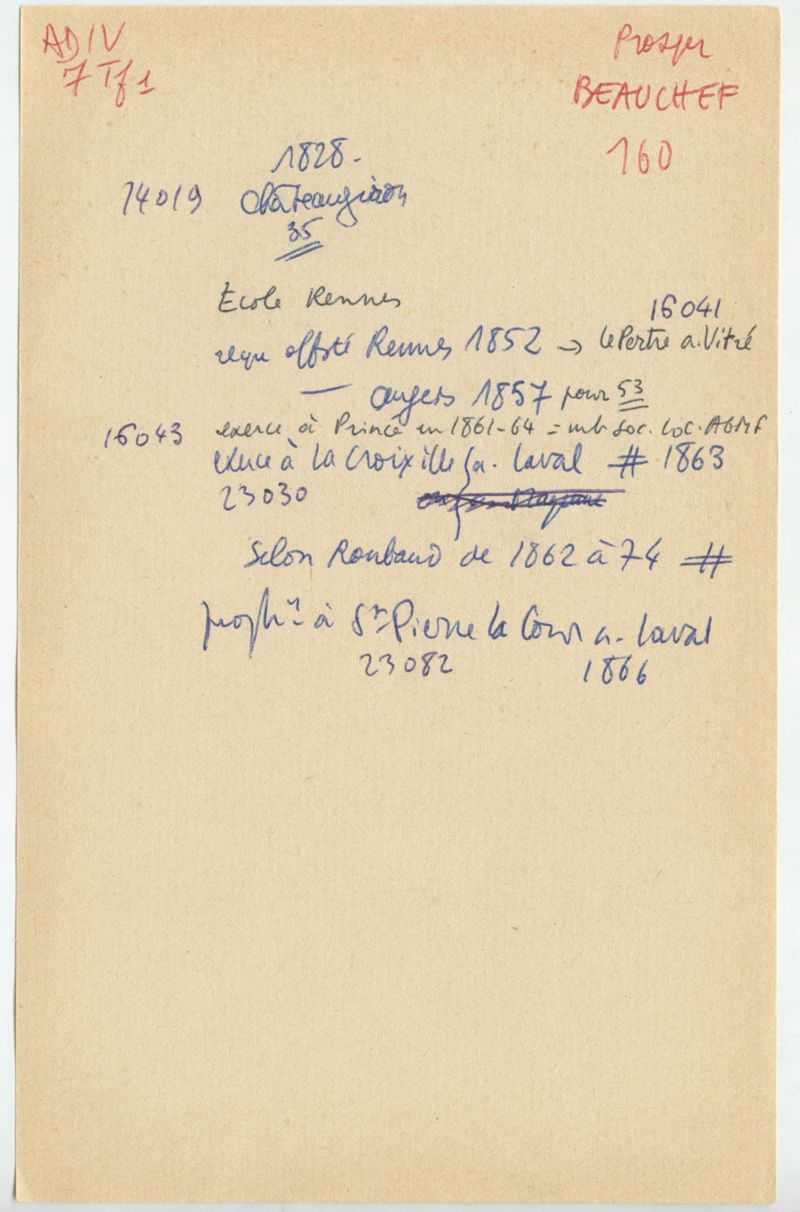 ADIV
7 Tf 1
Prosper
BEAUCHEF
160
1828.
14019 Châteaugiron
35
École Rennes
16041
reçu offsté Rennes 1852 → le Pertre a. Vitré
— angers 1857 pour 53
16043 exerce à Princé en 1861-64 = mb soc. loc. AGMF
exerce à la Croixille (a. Laval # 1863
23030
Selon Roubaud de 1862 à 74 #
à St Pierre la Cour a. Laval
23082 1866